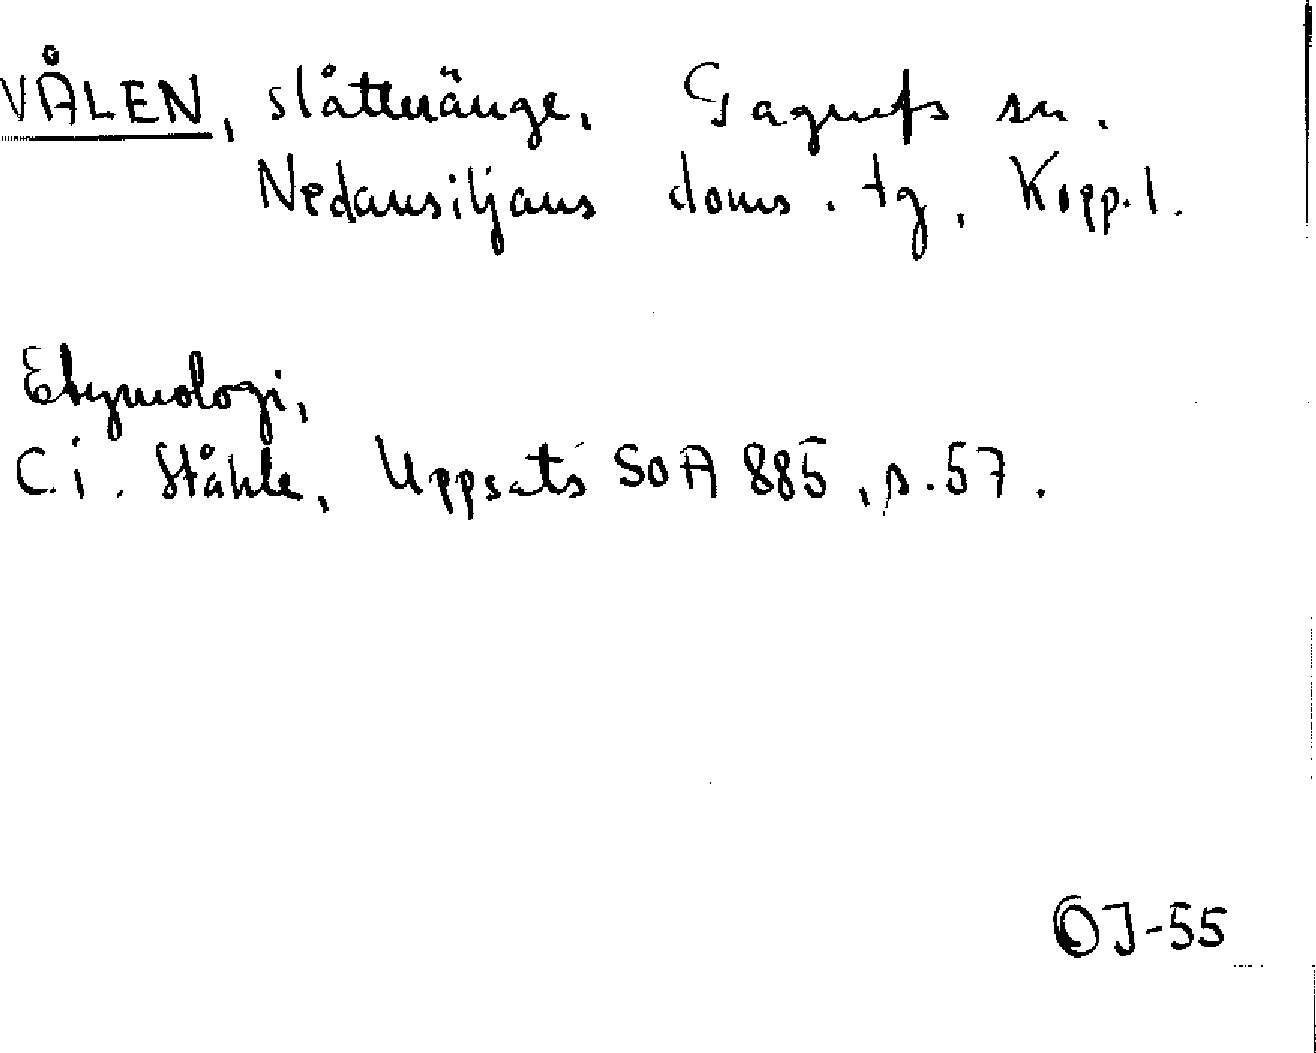 VÅLEN, slåtteränge, Gagnefs sn.
Nedansiljans doms. tg, Kopp. l.
Etymologi,
C. i. Ståhle, Uppsats SOA 885, s. 57.
OJ-55